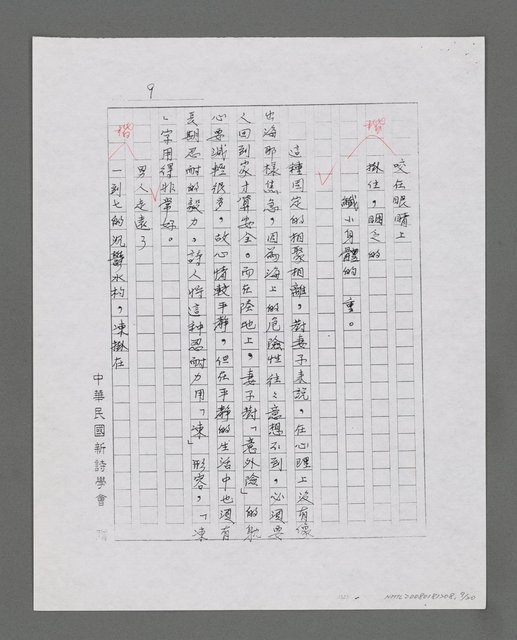 9
楷
咬在眼睛上
揪住，睏乏的
纖小身體的 重。
這種固定的相聚相離，對妻子來說，在心理上沒有像
出海那樣焦急，因為海上的危險性往往意想不到，必須要
人回到家才算安全。而在陸地上，妻子對「意外險」的
心要減輕很多，故心情較平靜，但在平靜的生活中也須有
長期忍耐的毅力，詩人將這種忍耐力用「凍」形容，「凍
」字用得非常好。
楷
男人走遠了
一到七的沉鬱水杓，凍掛在
中華民國新詩學會
NMTL20080181208, 9/20